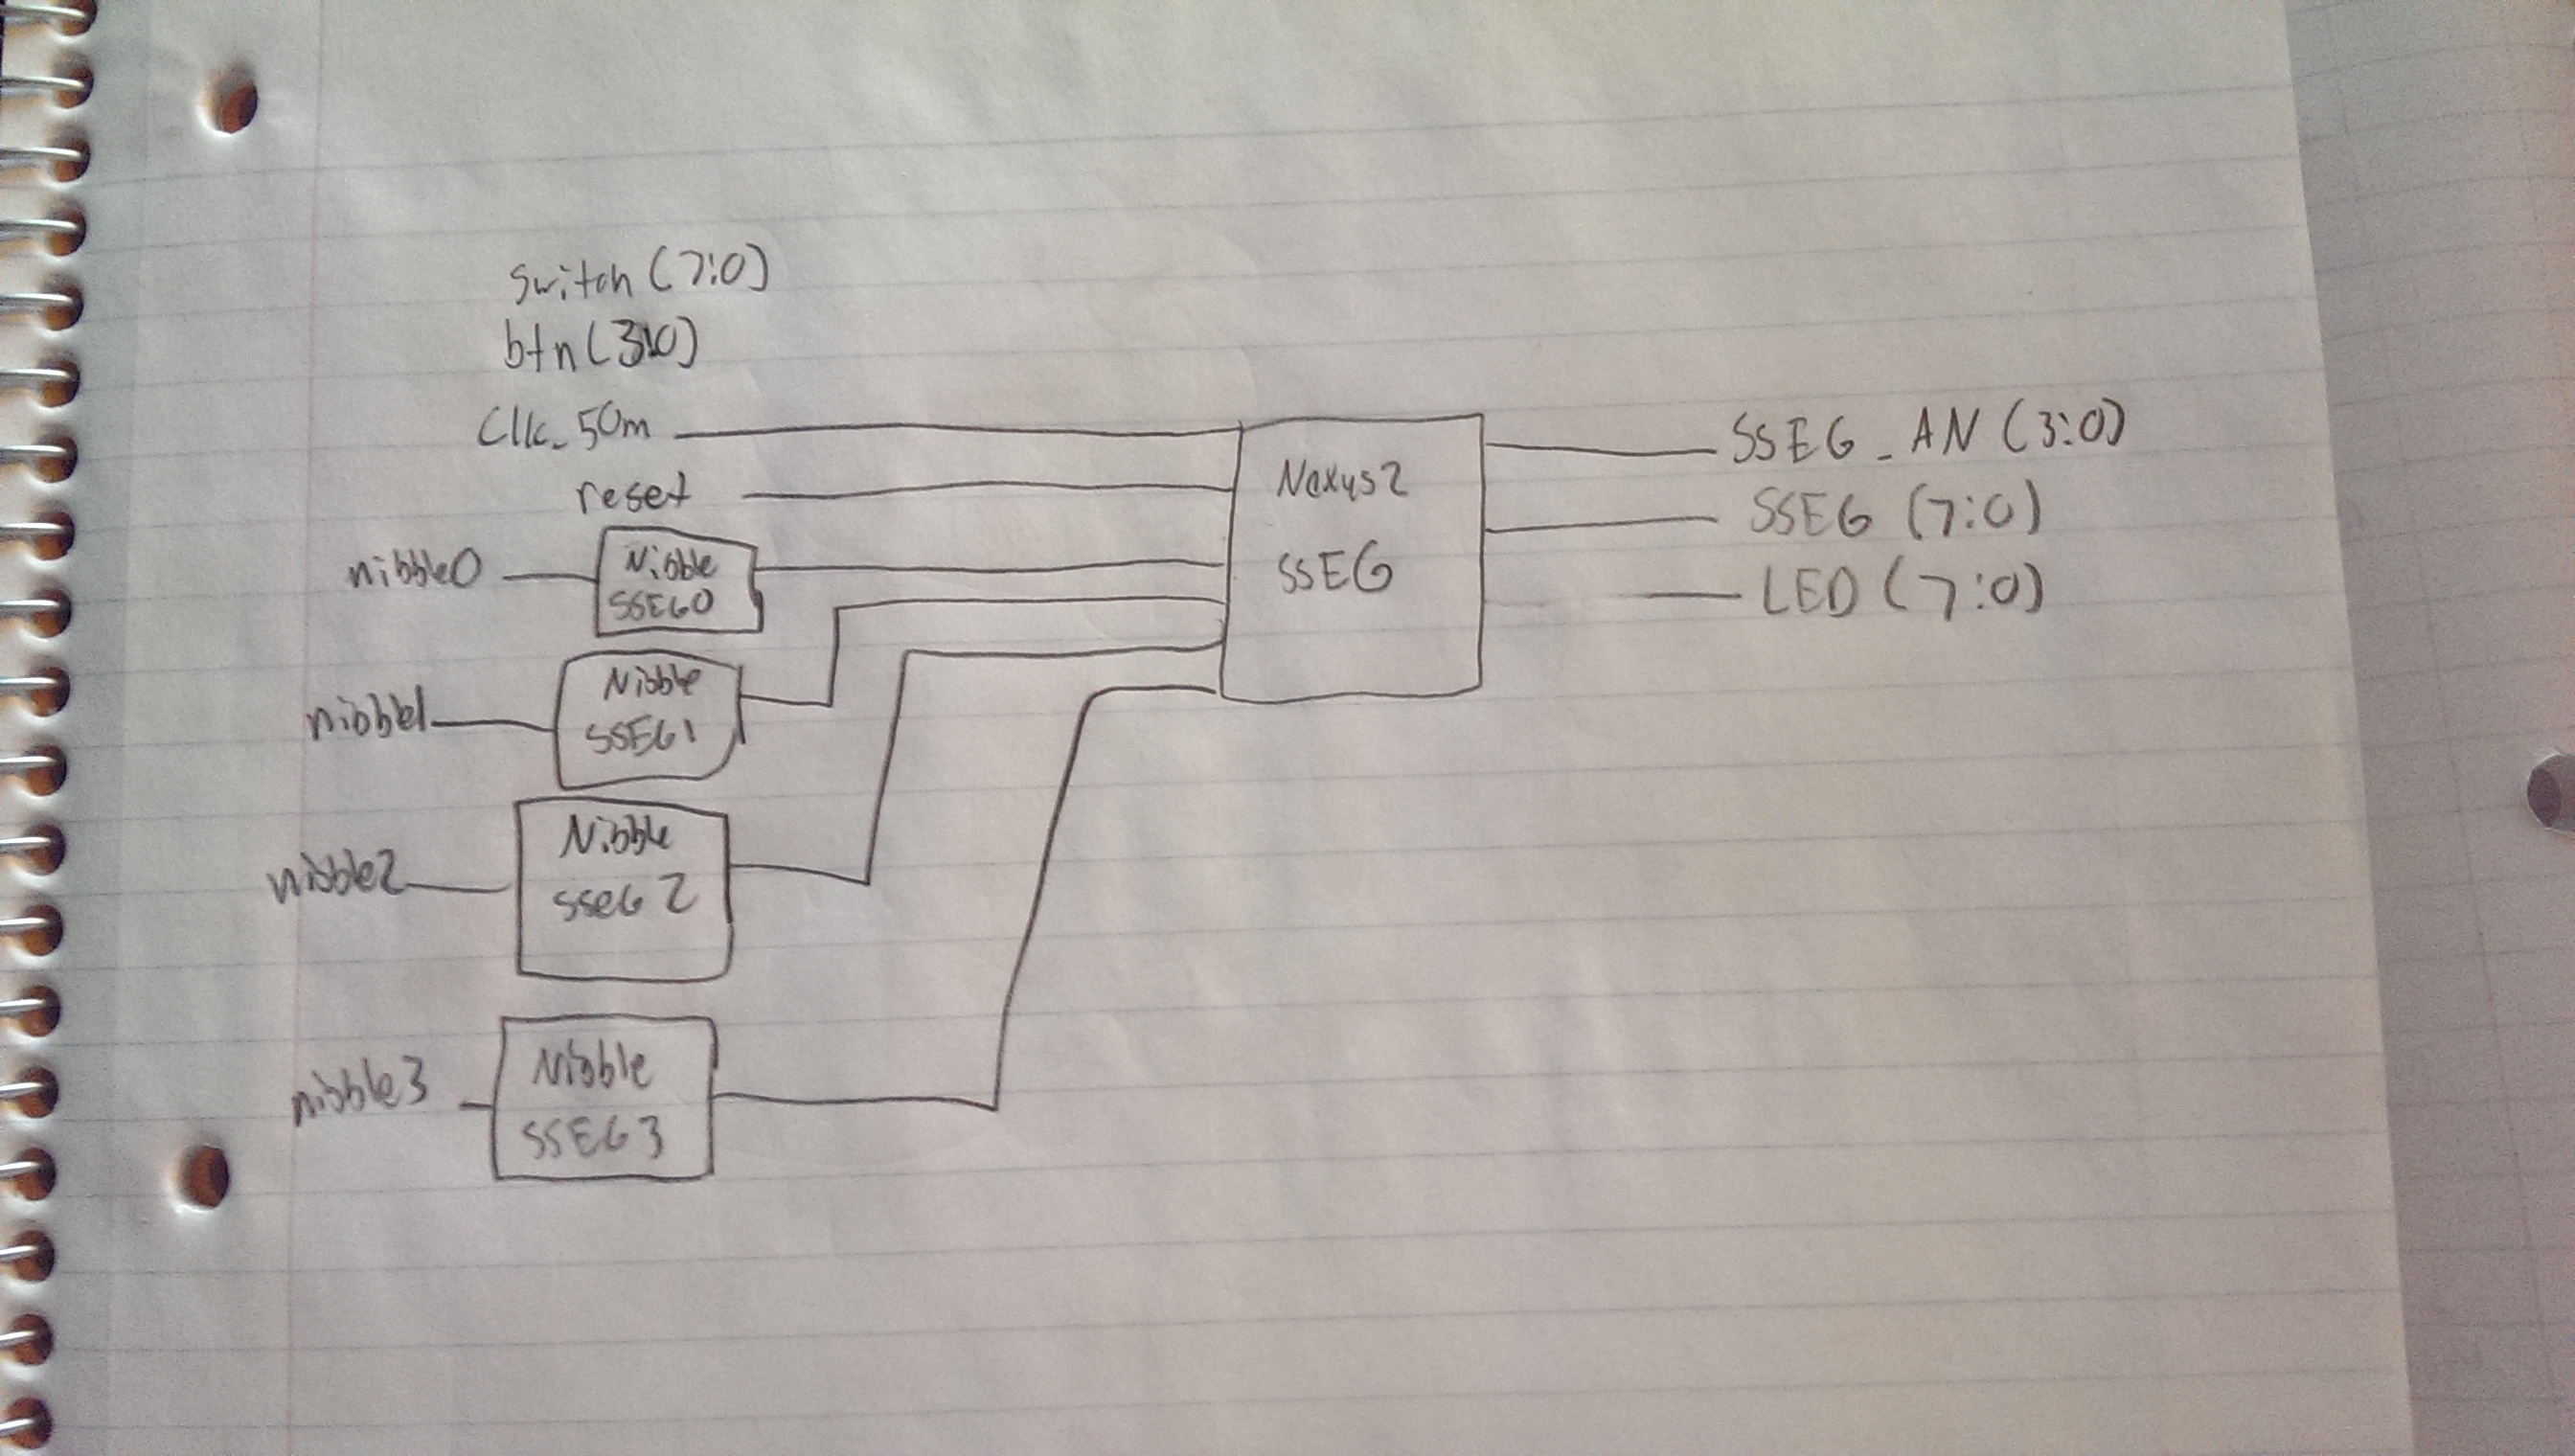 switch (7:0)
btn (3:0)
Clk_50m
reset
nibble0
Nibble
SSEG0
nibble1
Nibble
SSEG1
nibble2
Nibble
sseG 2
nibble3
Nibble
SSEG 3
Nexys2
SSEG
SSEG_AN (3:0)
SSEG (7:0)
LED (7:0)